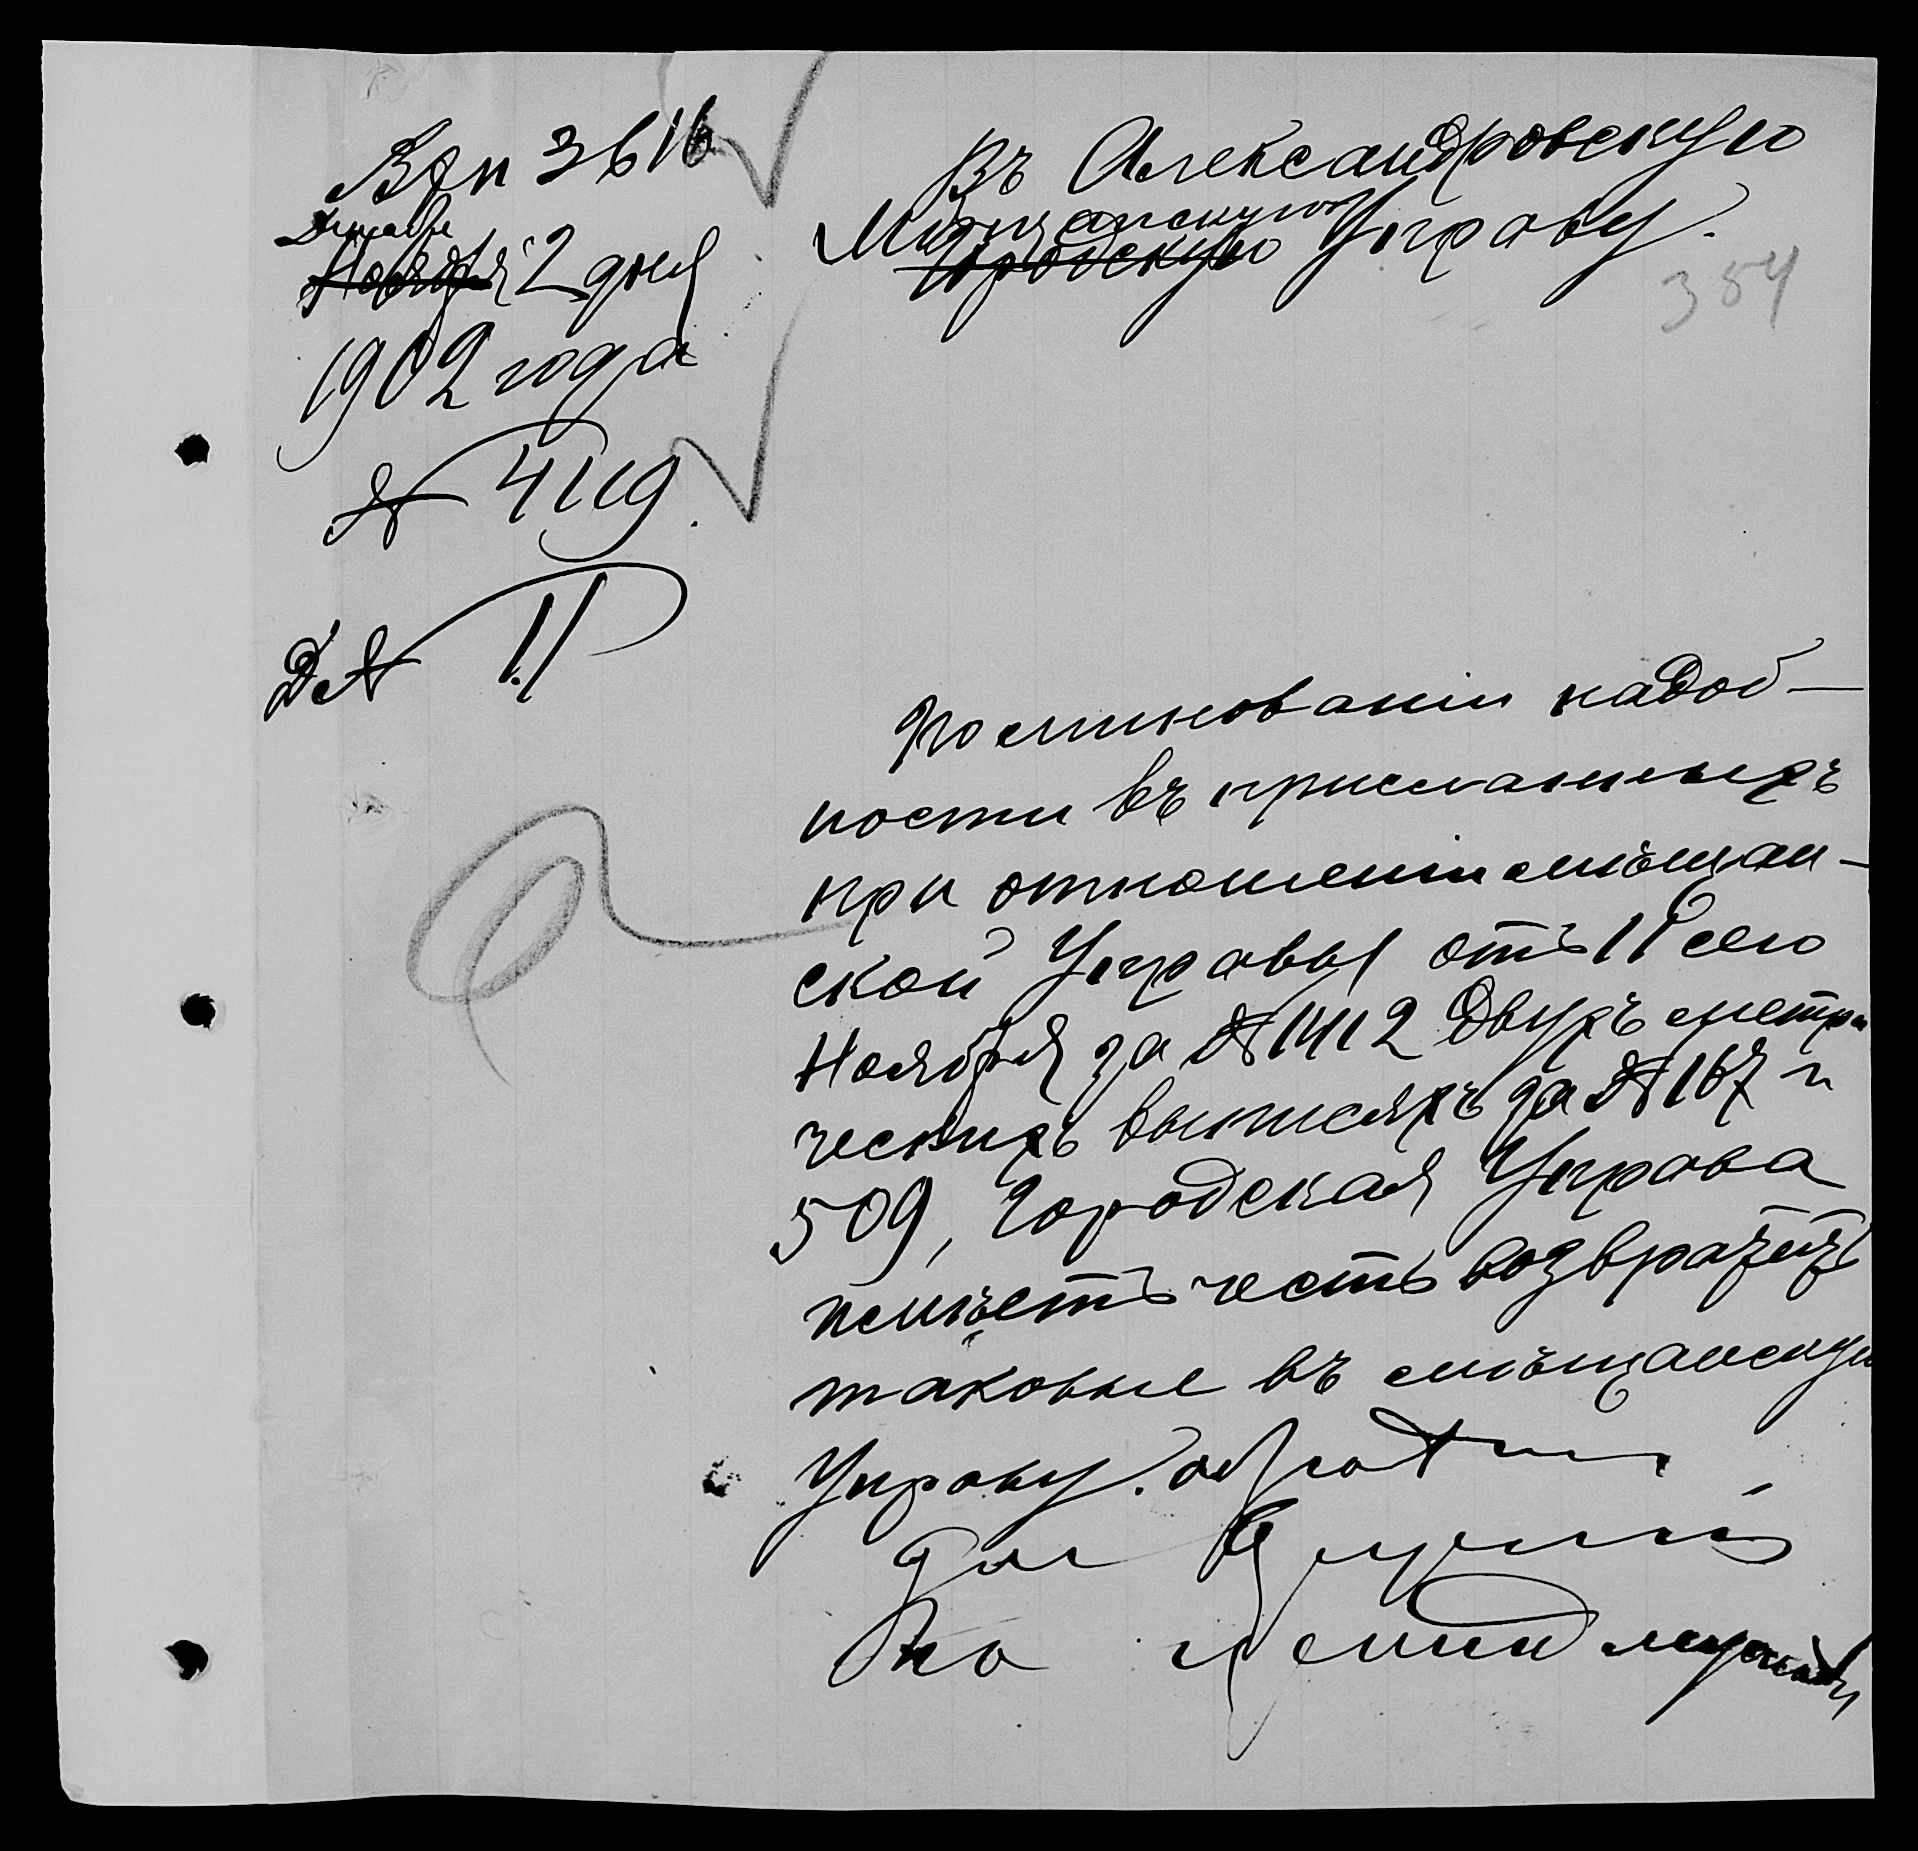 Вхп 3616
Декабря
Ноября 2 дня
1902 года
№ 4119.
Д № 11
Въ Александровскую
Мѣщанскую
Городскую Управу.
384
По минованіи надоб-
ности въ присланныхъ
при отношеніи мѣщан-
ской Управы отъ 11 сего
Ноября за № 1412 двухъ метри
ческихъ выписяхъ за № 167 и
509, Городская Управа
имѣетъ честь возвратить
таковые въ мѣщанскую
Управу. обратно